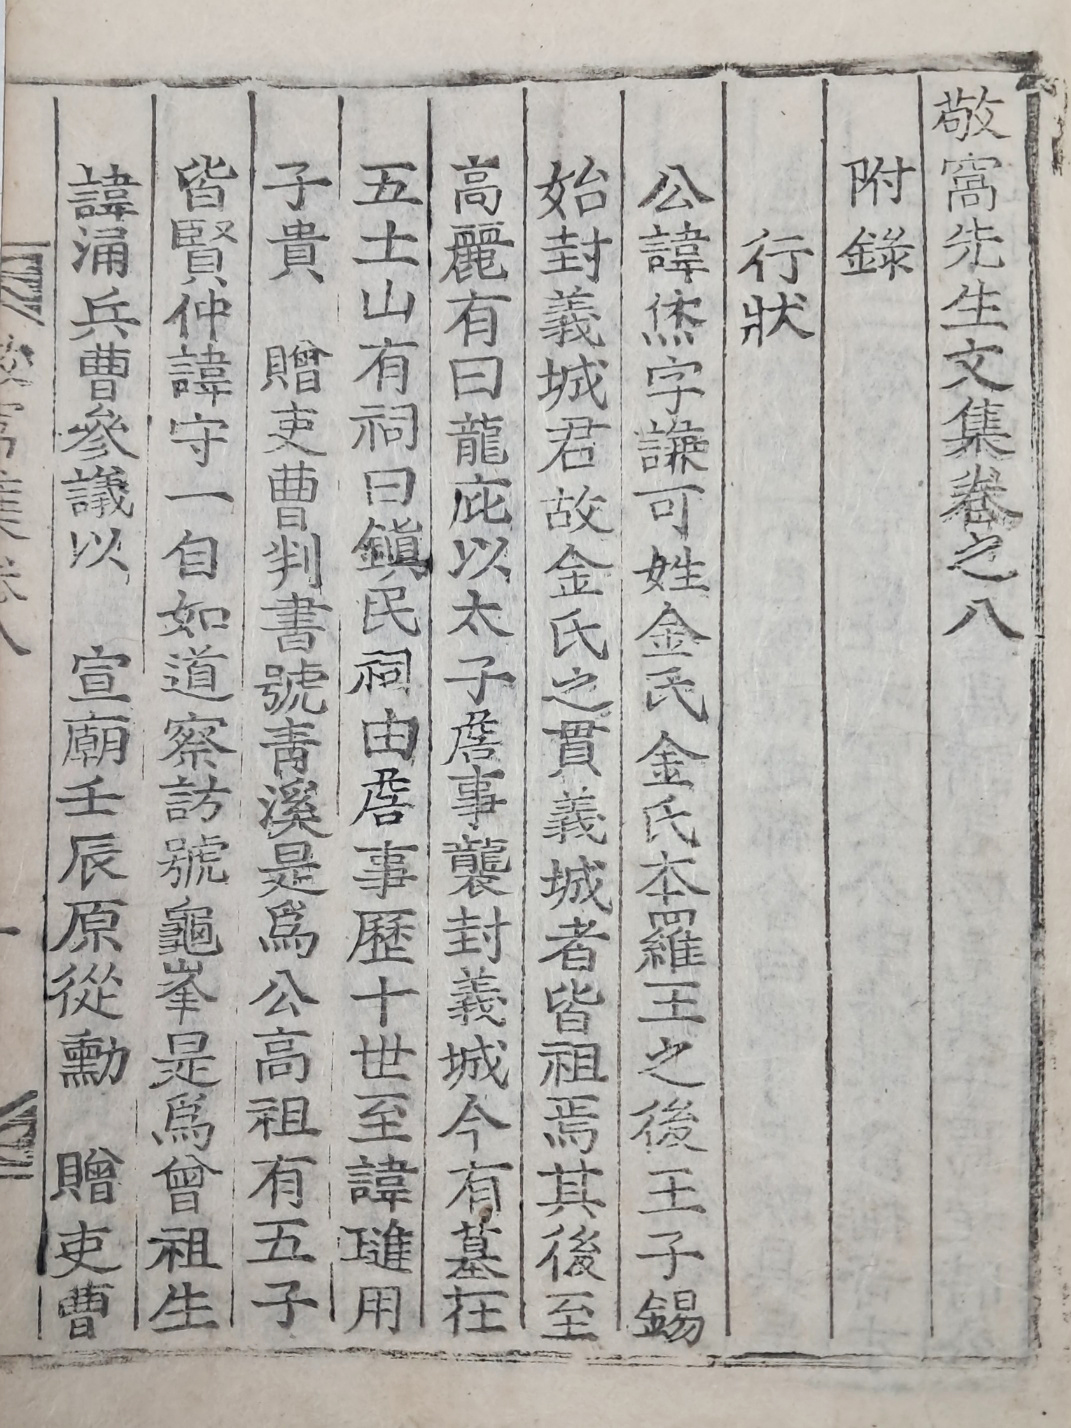 敬窩先生文集卷之八
附錄
行狀
公諱烋字謙可姓金氏金氏本羅王之後王子錫
始封義城君故金氏之貫義城者皆祖焉其後至
高麗有曰龍庇以太子詹事襲封義城今有墓在
五土山有祠曰鎭民祠由詹事歷十世至諱璡用
子貴 贈吏曹判書號靑溪是爲公高祖有五子
皆賢仲諱守一自如道察訪號龜峯是爲曾祖生
諱涌兵曹參議以 宣廟壬辰原從勳 贈吏曹